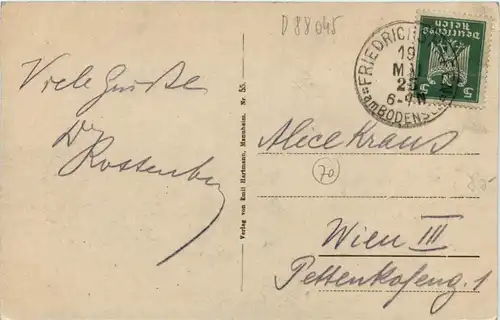 D 88 045
Viele Grüße
Dr Rossenberg
Verlag von Emil Hartmann, Mannheim. Nr. 55.
FRIEDRICHSHAFEN
19
25
6-7 N
am BODENSEE
Deutsches Reich
5 5
Alice Kraus
70
Wien III
Pettenkofeng. 1